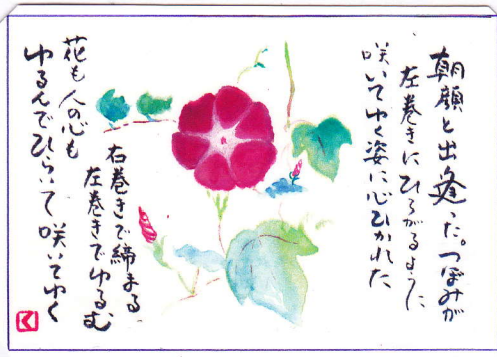 朝顔と出逢った。つぼみが
左巻きにひろがるように
咲いてゆく姿に心ひかれた
右巻きで締まる
左巻きでゆるむ
花も人の心も
ゆるんでひらいて咲いてゆく
く